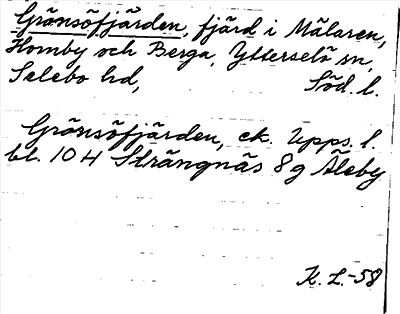 Gränsöfjärden, fjärd i Mälaren,
Hornby och Berga, Ytterselö sn,
Selebo hd, Söd. l.
Gränsöfjärden, ek. Upps. l.
bl. 104 Strängnäs 8g Åleby
K. L.-58